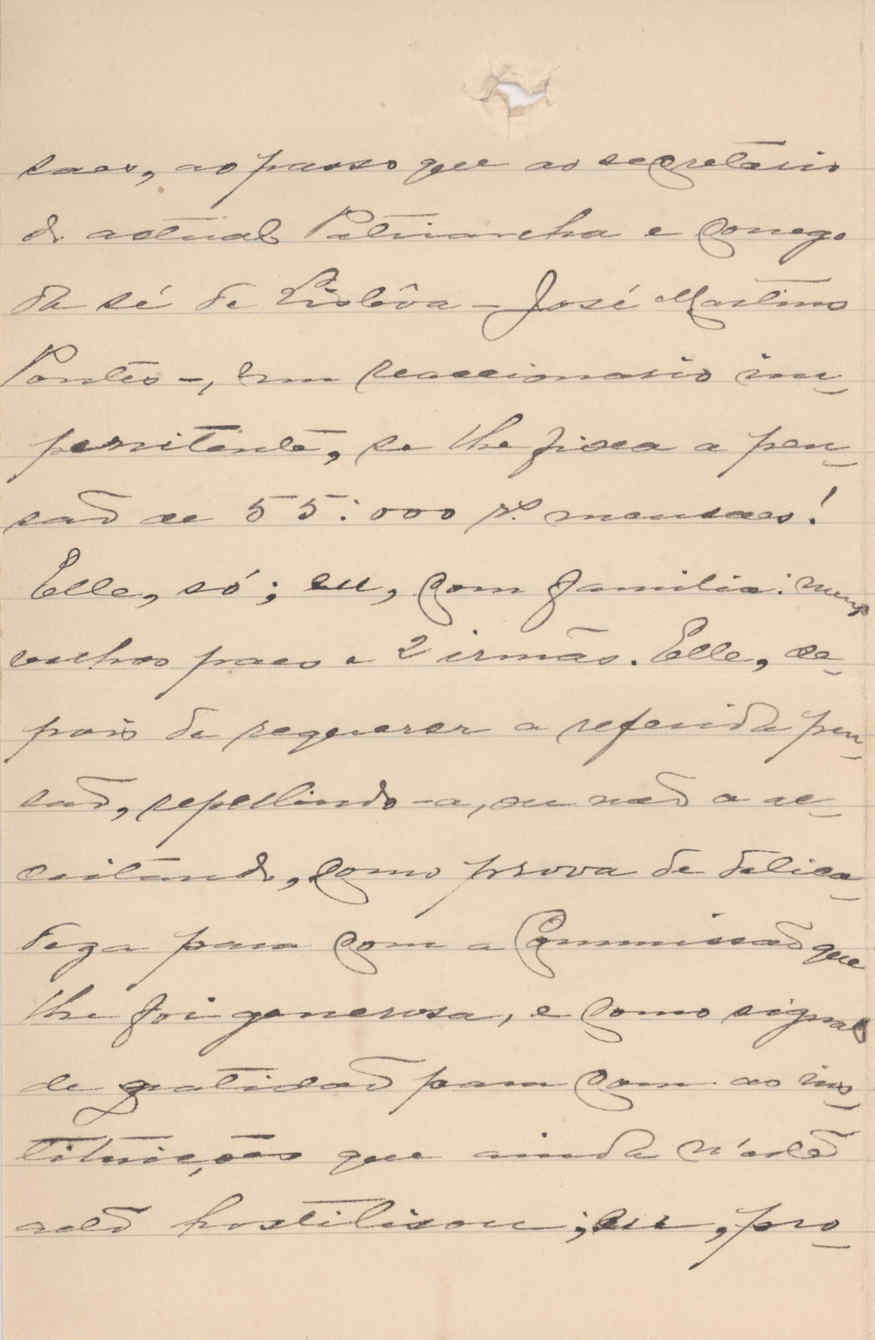 saes, ao passo que ao secretario
do actual Patriarcha e conego
da sé de Lisbôa - José Martins
Pontes -, um reaccionario im-
penitente, se lhe fixa a pen-
saõ de 55:000 rs. mensaes!
Elle, só; eu, com familia: meus
velhos paes e 2 irmãs. Elle, de-
pois de requerer a referida pen-
saõ, repellindo-a, ou naõ a ac-
ceitando, como prova de delica-
deza para com a Commissaõ que
lhe foi generosa, e como signal
de gratidaõ para com as ins-
tituições que ainda
naõ hostilisou; eu, pro-